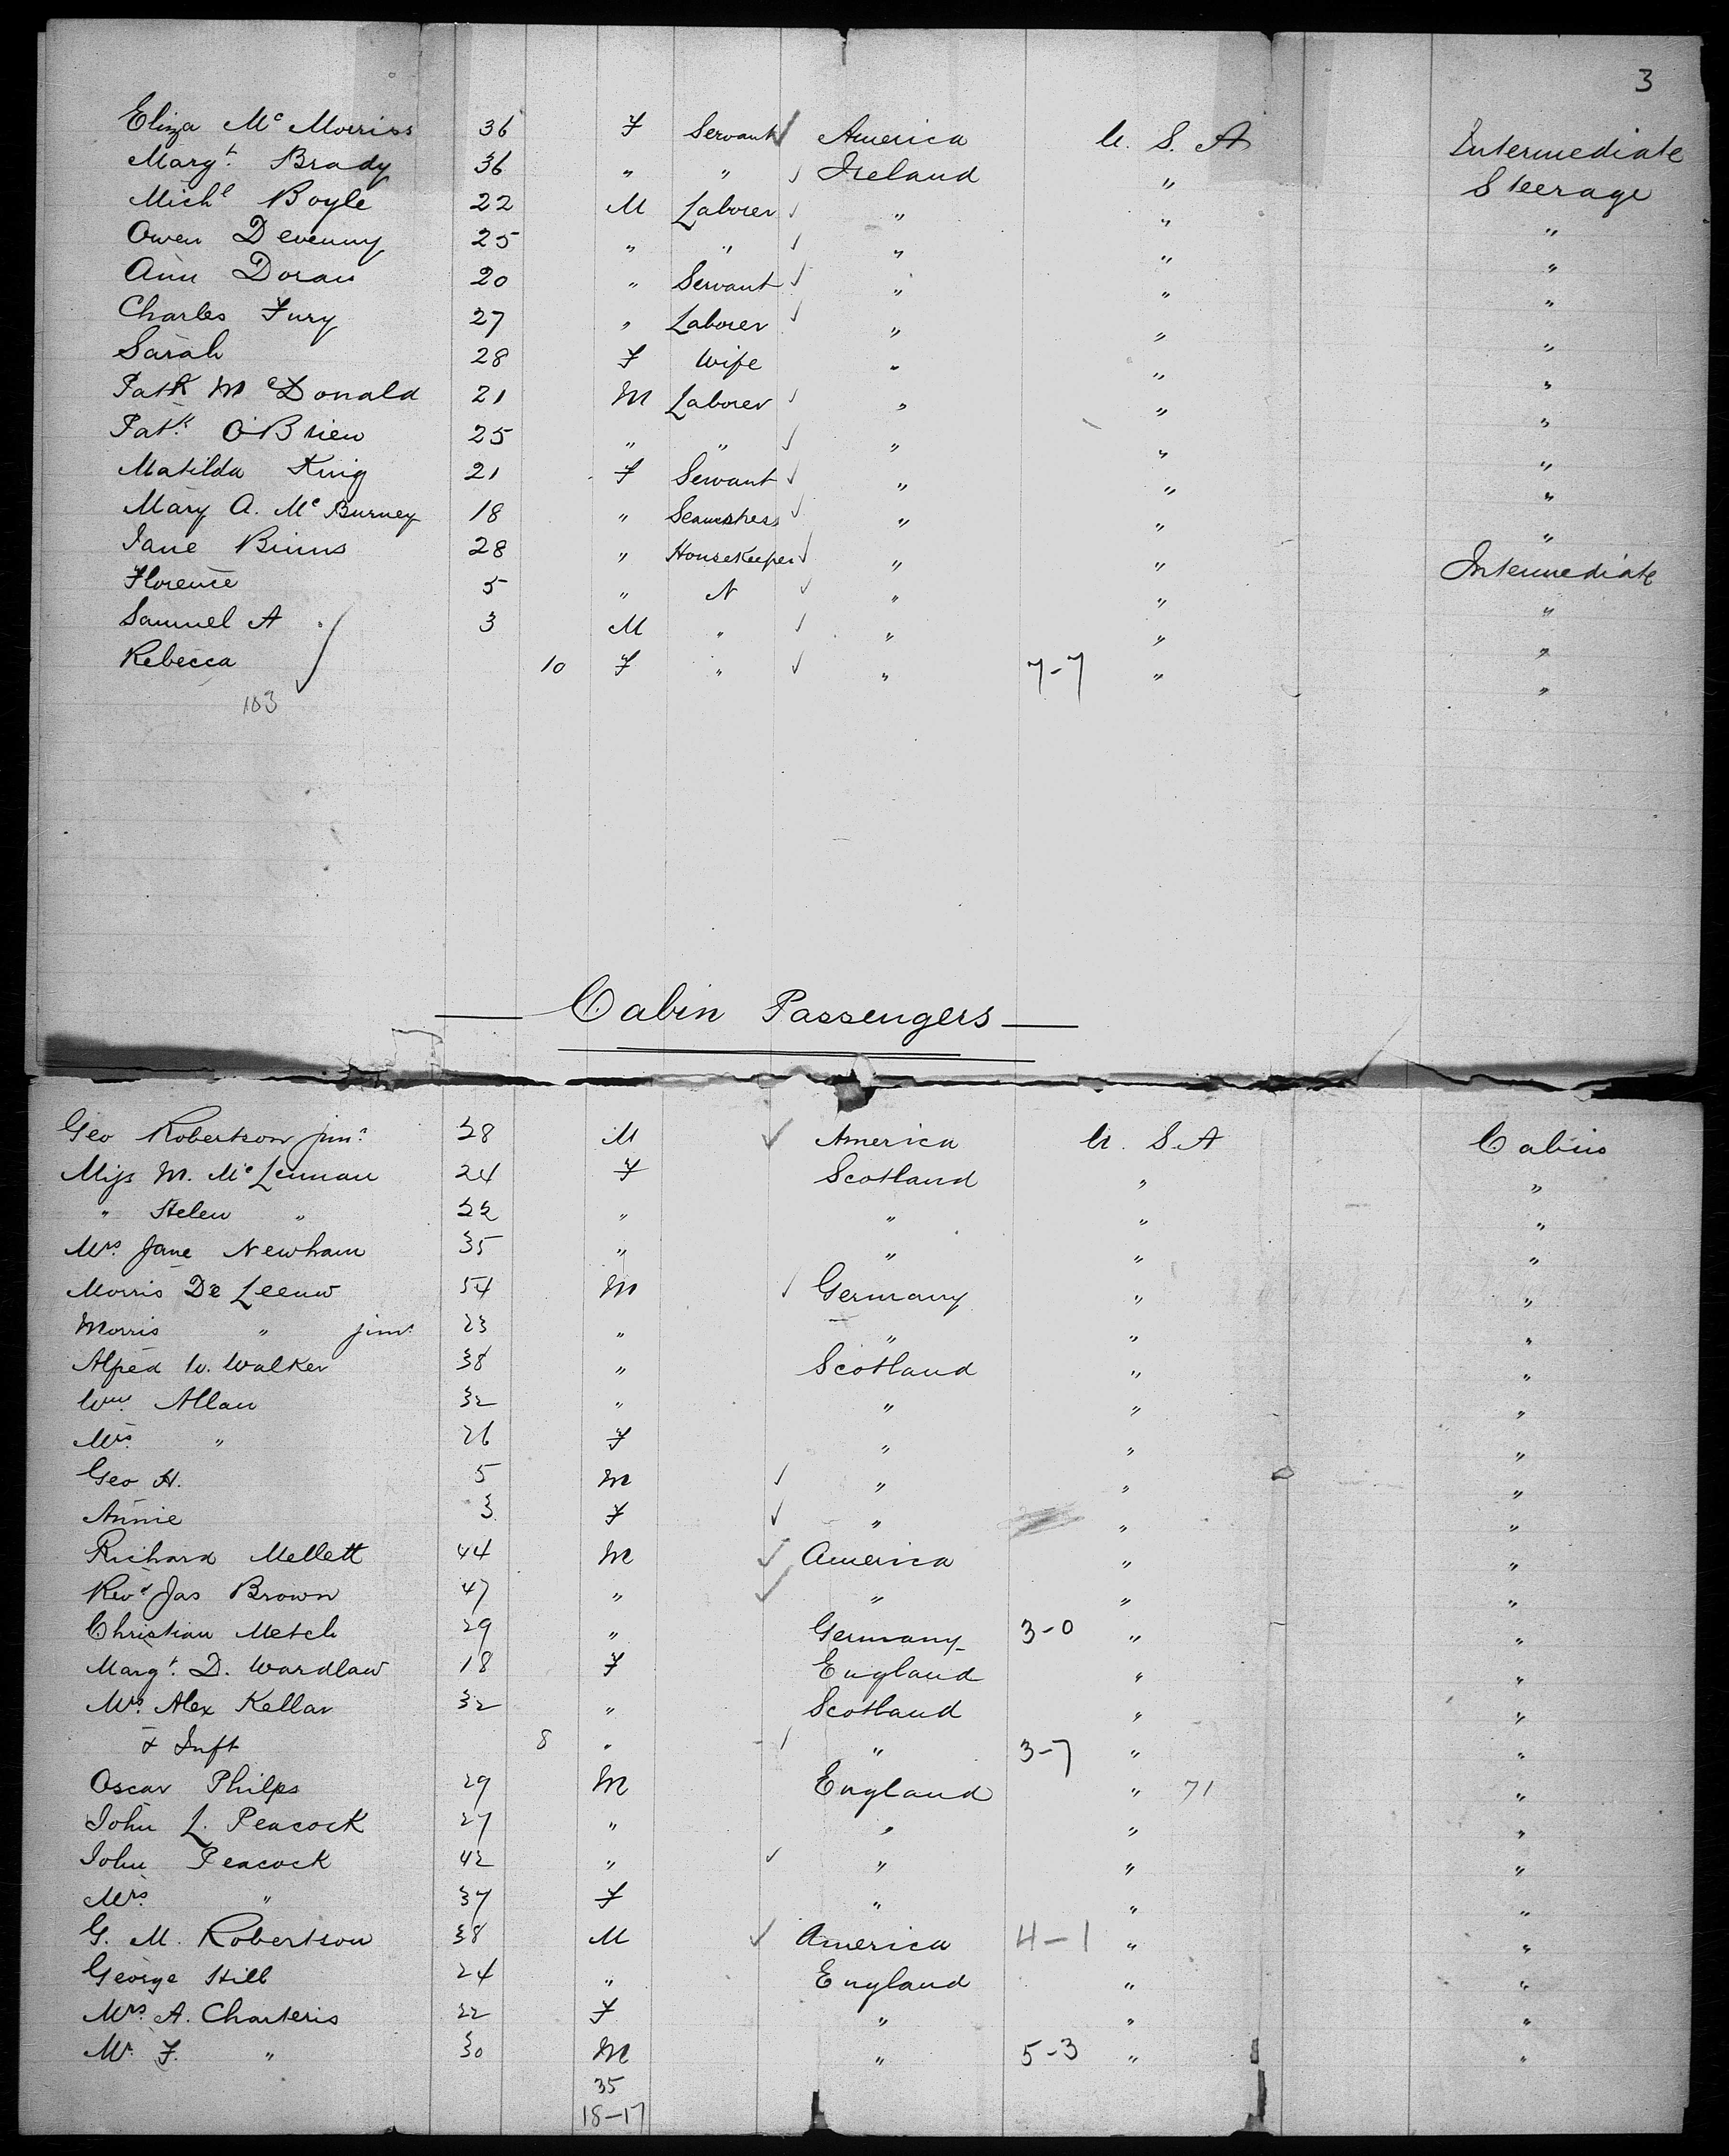 3
Eliza Mc Morriss 36 F Servant ✓ America U. S. A Intermediate
Margt. Brady 36 " " ✓ Ireland " Steerage
Michl Boyle 22 M Laborer ✓ " " "
Owen Devenny 25 " " ✓ " " "
Ann Doran 20 " Servant ✓ " " "
Charles Fury 27 " Laborer ✓ " " "
Sarah 28 F Wife " " "
Patk McDonald 21 M Laborer ✓ " " "
Patk. O'Brien 25 " " ✓ " " "
Matilda King 21 F Servant ✓ " " "
Mary A. Mc Burney 18 " Seamstress ✓ " " "
Jane Binns 28 " Housekeeper ✓ " " Intermediate
Florence 5 " N ✓ " " "
Samuel A 3 M " ✓ " " "
Rebecca 10 F " ✓ " 7-7 " "
103
Cabin Passengers
Geo Robertson junr 28 M ✓ America U. S. A Cabin
Miss M. McLennan 24 F Scotland " "
" Helen " 22 " " " "
Mrs. Jane Newham 35 " " " "
Morris De Leeuw 54 M ✓ Germany " "
Morris " junr 23 " " " "
Alfred W. Walker 38 " Scotland " "
Wm. Allan 32 " " " "
Mrs. " 26 F " " "
Geo H. 5 M ✓ " " "
Annie 3 F ✓ " " "
Richard Mellett 44 M ✓ America " "
Revd Jas Brown 47 " ✓ " " "
Christian Metch 29 " Germany 3-0 " "
Margt. D. Wardlaw 18 F England " "
Mrs. Alex Kellar 32 " Scotland " "
& Inft 8 " " 3-7 " "
Oscar Philps 29 M England " 71 "
John L. Peacock 27 " " " "
John Peacock 42 " ✓ " " "
Mrs. " 37 F " " "
G. M. Robertson 38 M ✓ America 4-1 " "
George Hill 24 " England " "
Mrs. A. Charteris 22 F " " "
Mr. F. " 30 M " 5-3 " "
35
18-17